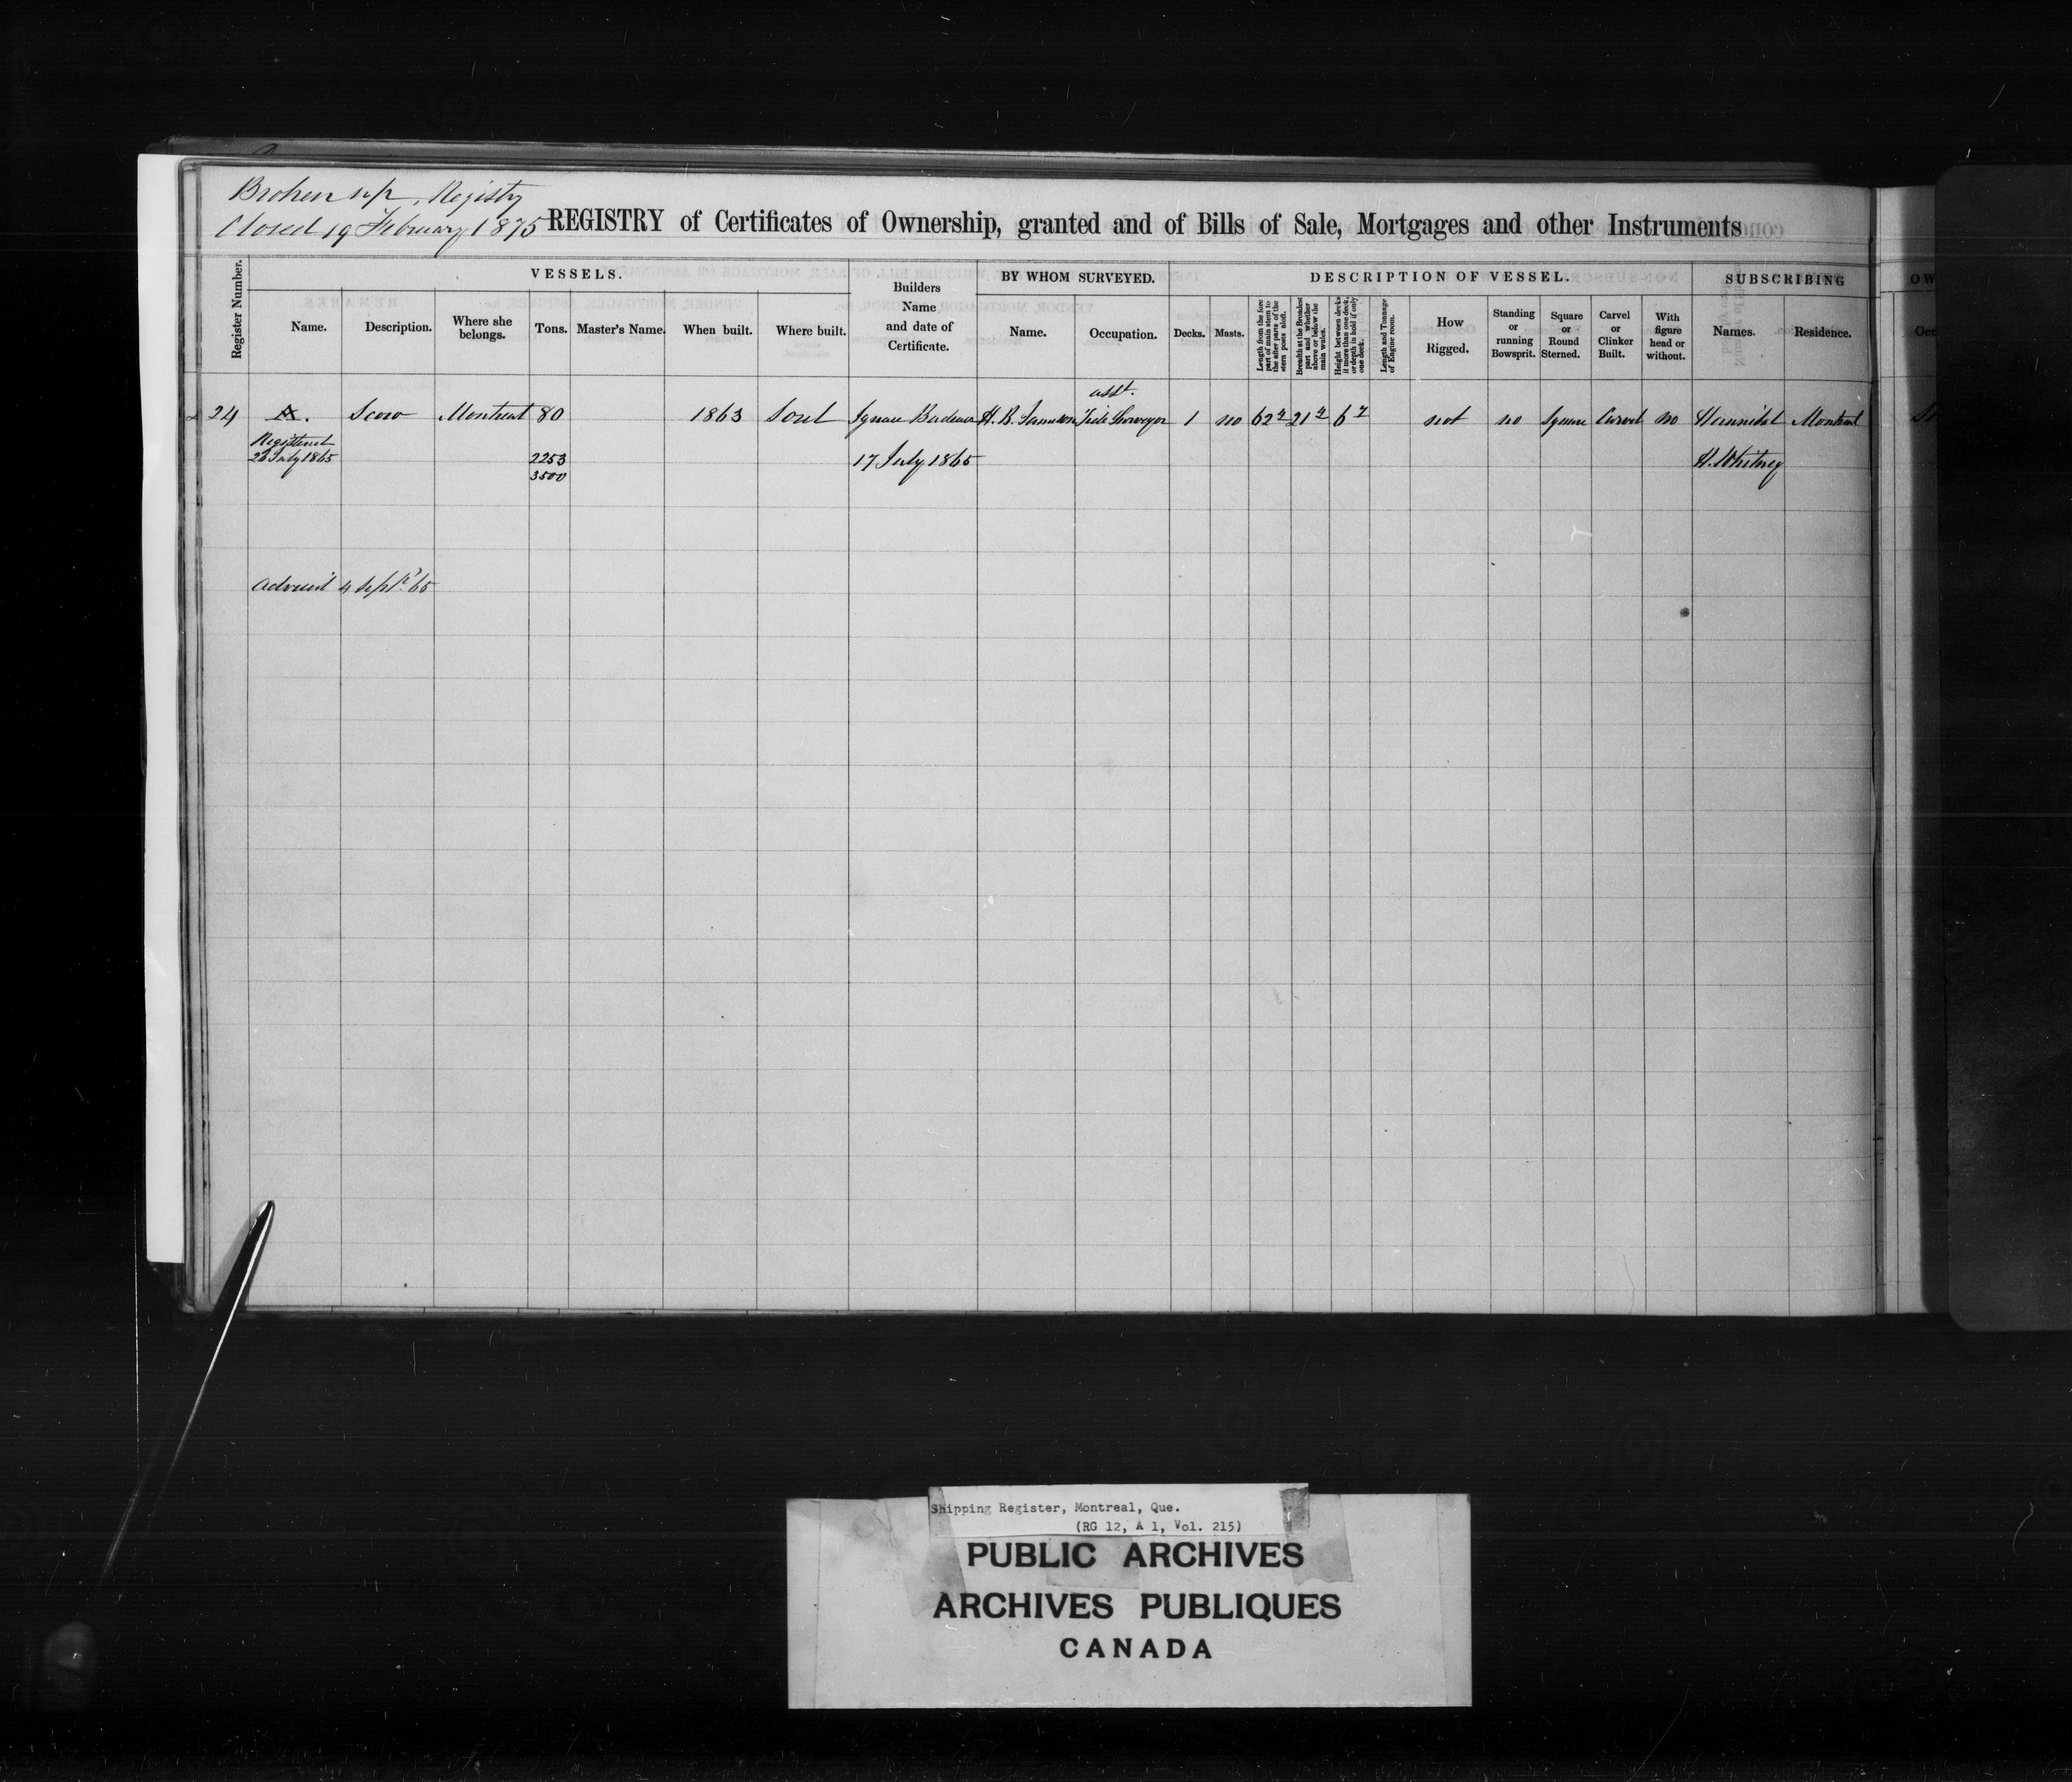 Broken up, Registry
Closed 19 February 1875
REGISTRY of Certificates of Ownership, granted and of Bills of Sale, Mortgages and other Instruments
Register Number.
VESSELS.
Name.
Description.
Where she belongs.
Tons.
Master's Name.
When built.
Where built.
Builders Name and date of Certificate.
BY WHOM SURVEYED.
Name.
Occupation.
DESCRIPTION OF VESSEL.
Decks.
Masts.
Length from the fore part of main stem to the after parts of the stern posts aloft.
Breadth at the Broadest part and whether above or below the main wales.
Height between decks if more than one deck, or depth in hold if only one deck.
Length and Tonnage of Engine room.
How Rigged.
Standing or running Bowsprit.
Square or Round Sterned.
Carvel or Clinker Built.
With figure head or without.
SUBSCRIBING
Names.
Residence.
asst.
24 A. Scow Montreal 80 1863 Sorel Ignace H. B. Tide Surveyor 1 no 62 21 6 not no Square Carvel no Hannibal Montreal
Registered
July 1865
2253
3500
17 July 1865
H. Whitney
4 Sept. 65
Shipping Register, Montreal, Que.
(RG 12, A 1, Vol. 215)
PUBLIC ARCHIVES
ARCHIVES PUBLIQUES
CANADA